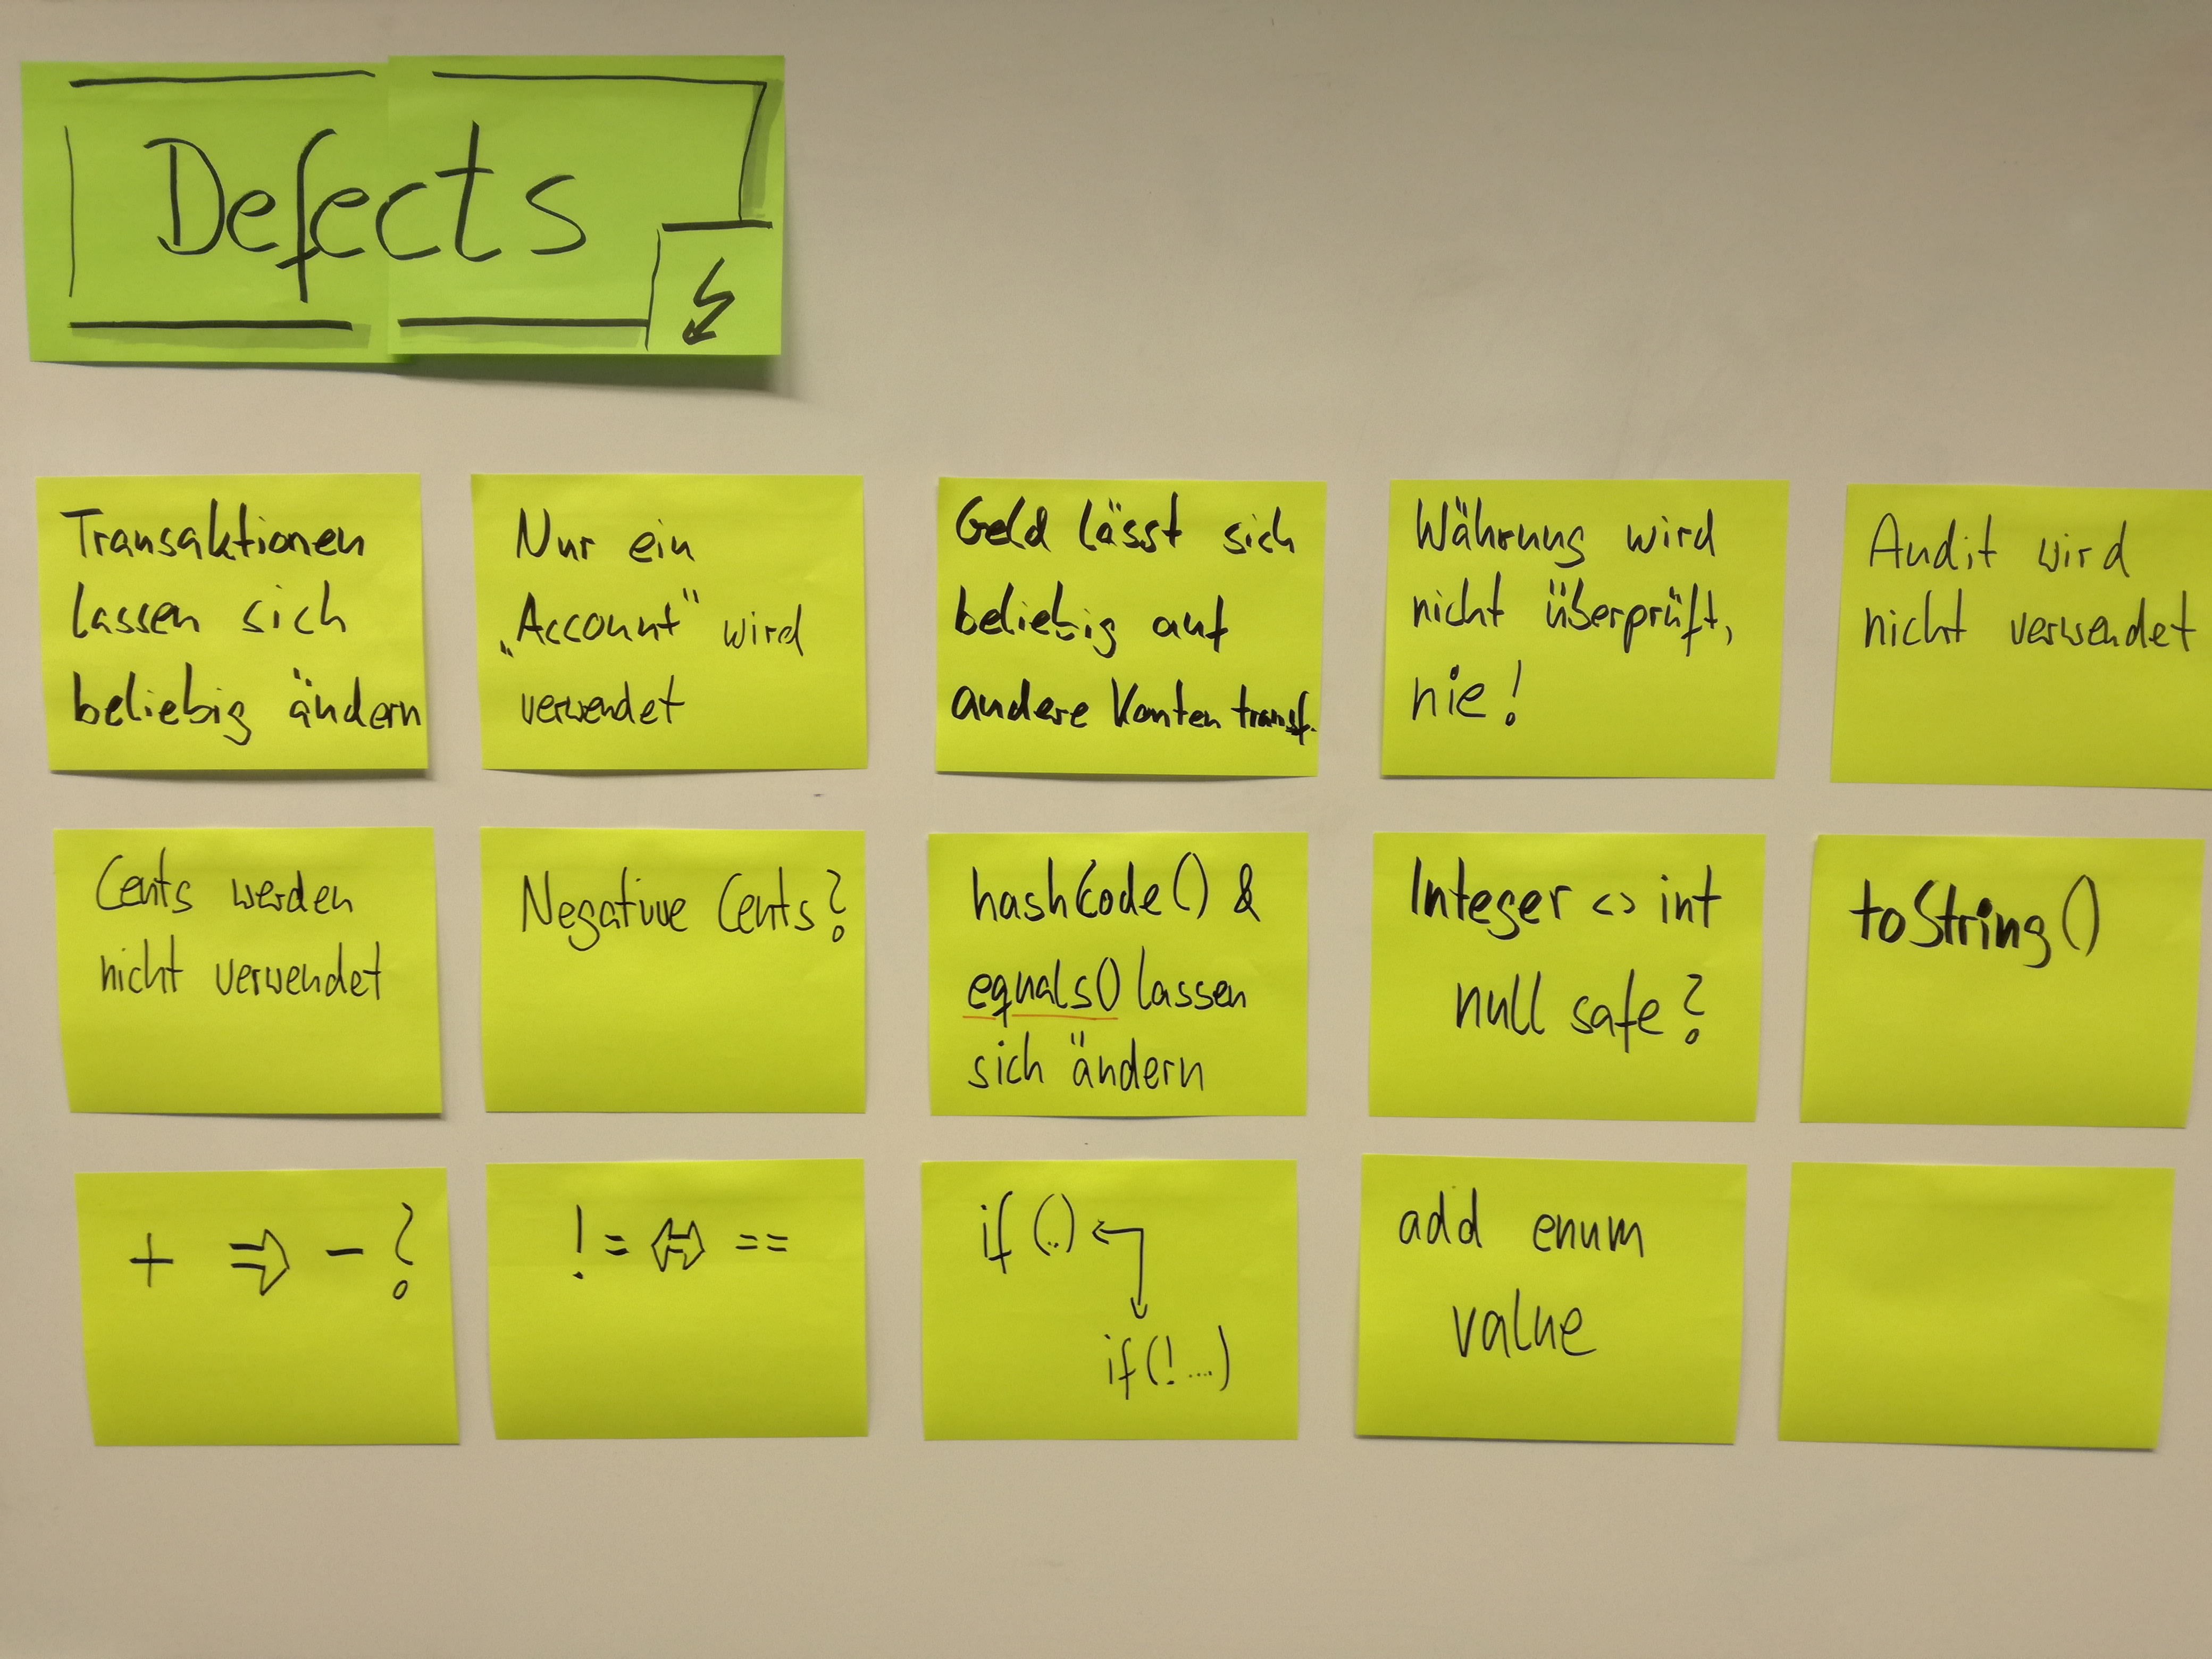 Defects
Transaktionen
lassen sich
beliebig ändern
Nur ein
„Account" wird
verwendet
Geld lässt sich
beliebig auf
andere Konten transf.
Währung wird
nicht überprüft,
nie!
Audit wird
nicht verwendet
Cents werden
nicht verwendet
Negative Cents?
hashCode() &
equals() lassen
sich ändern
Integer <> int
null safe?
toString()
+ ⇒ - ?
!= ⇔ ==
if (..)
if (!...)
add enum
value